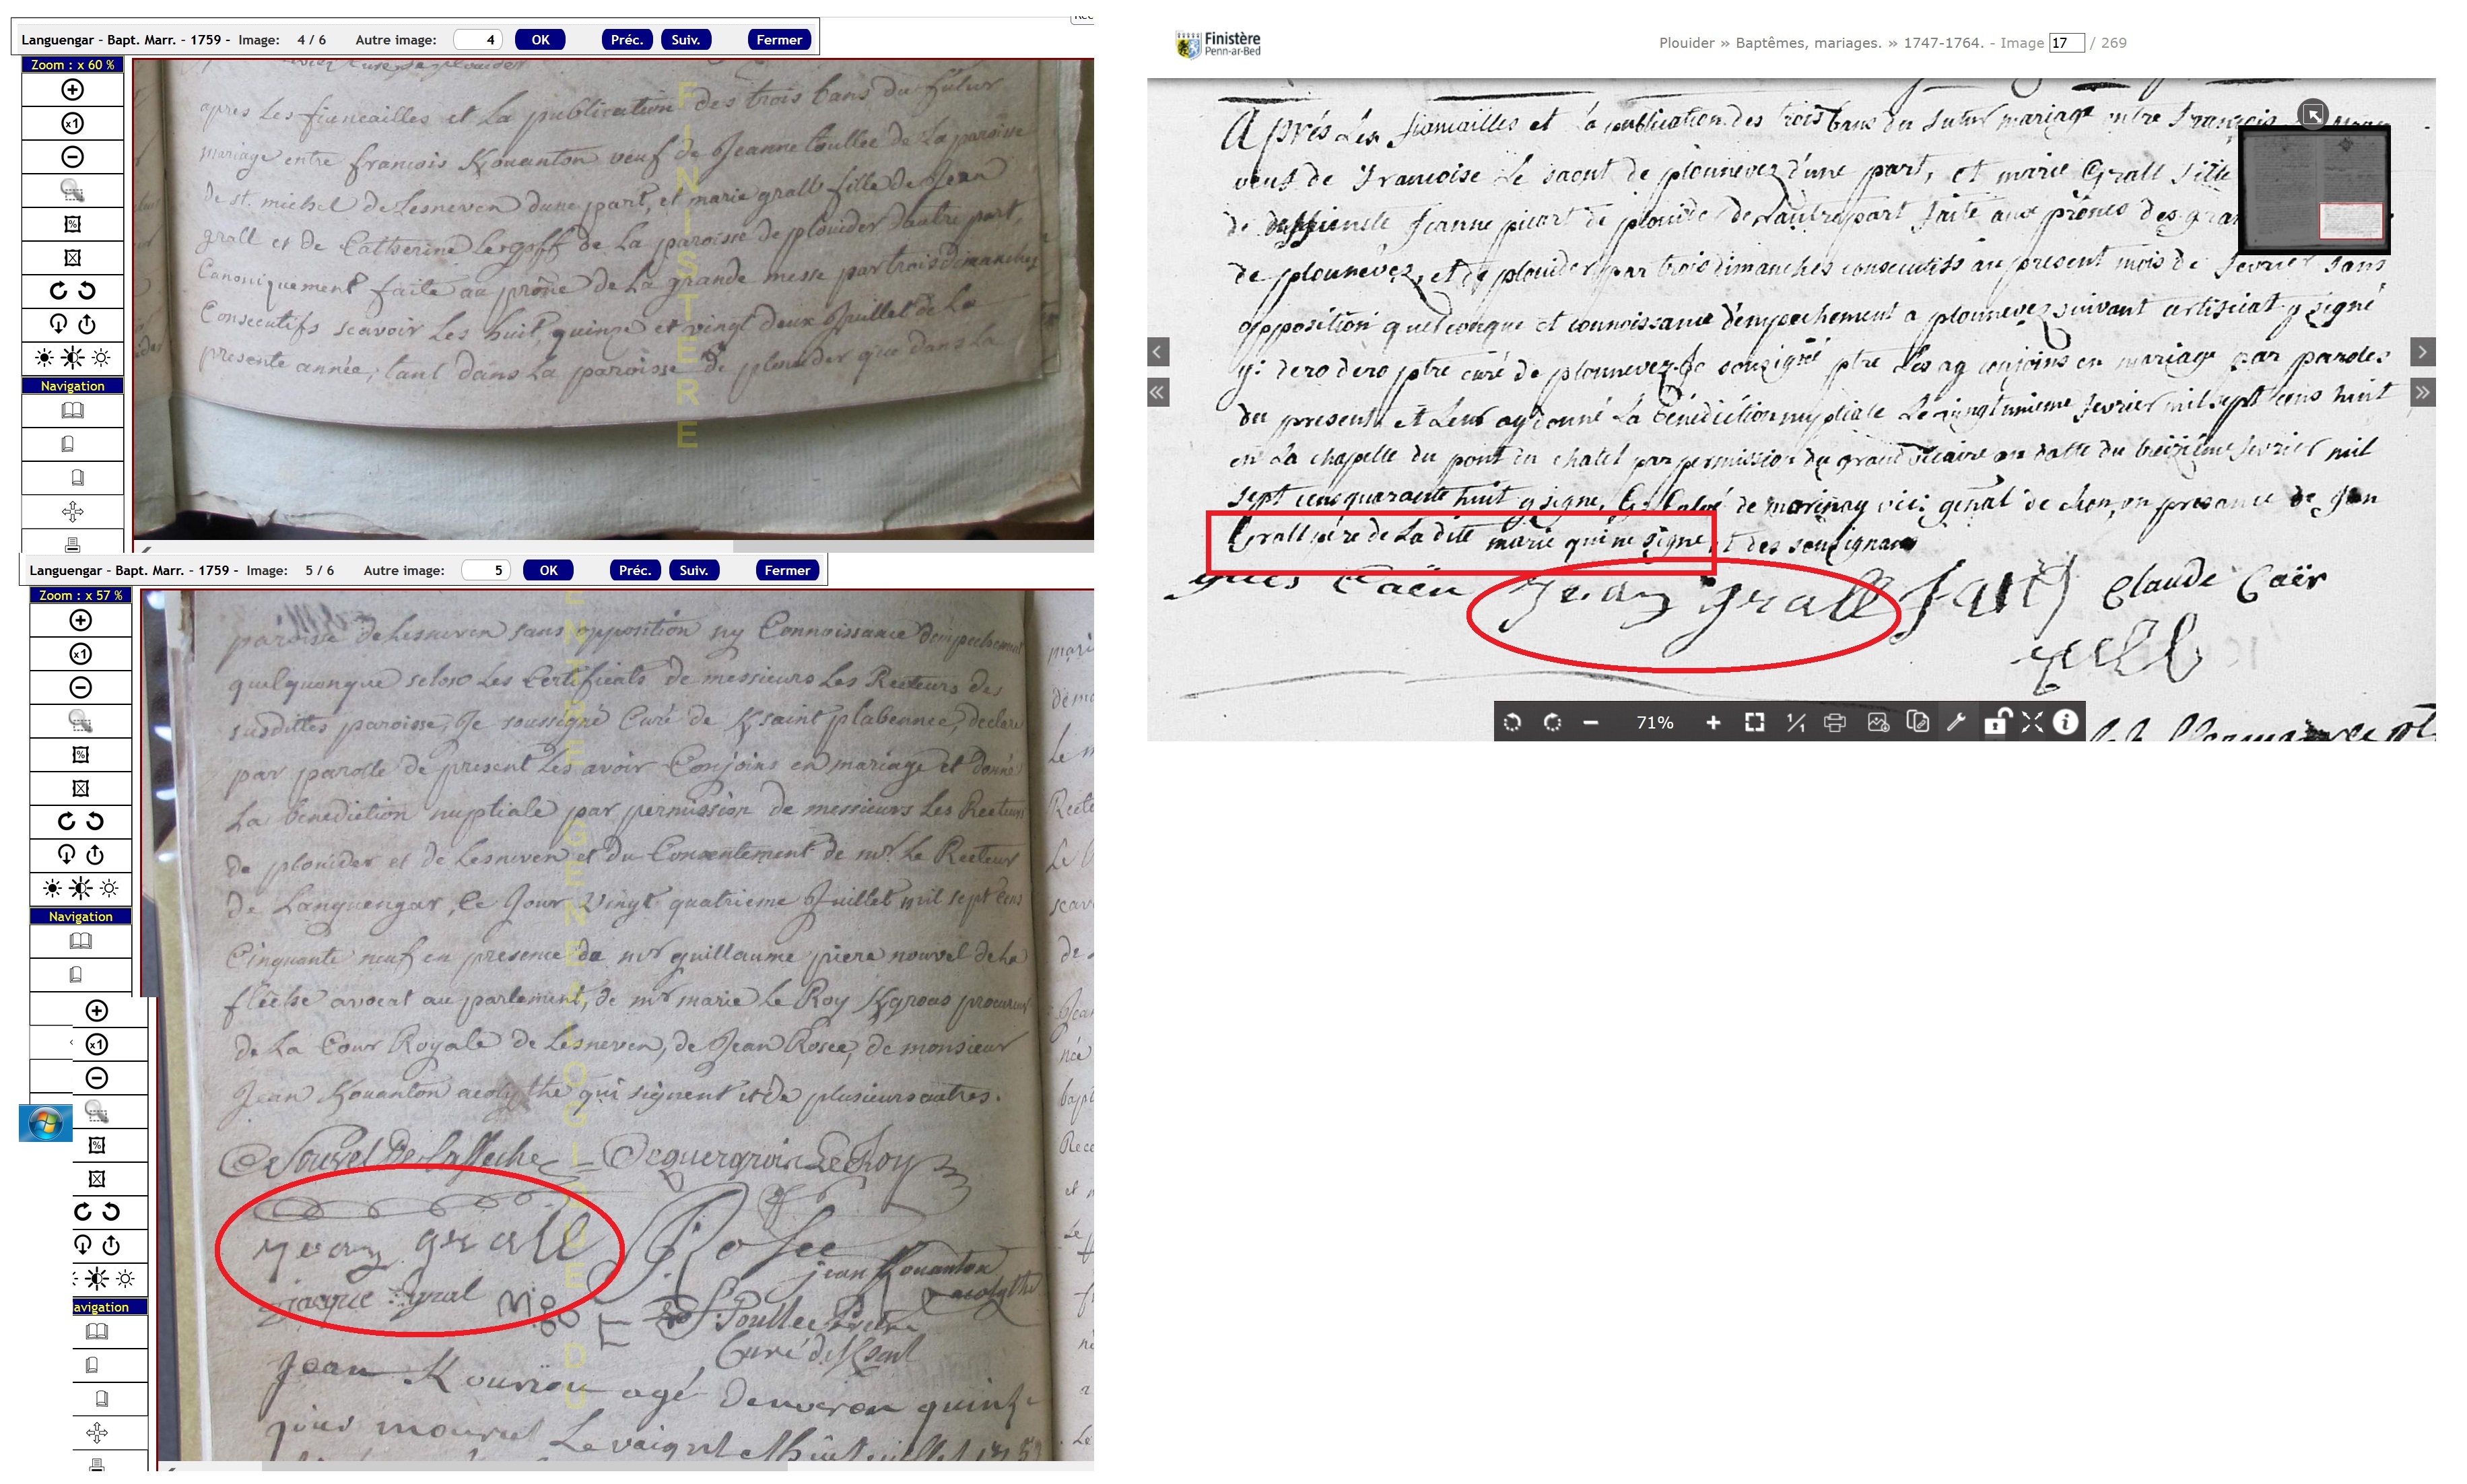 Languengar - Bapt. Marr. - 1759 - Image: 4 / 6 Autre image: 4 OK Préc. Suiv. Fermer
Zoom : x 60 %
x1
Navigation
apres Les fiancailles et La publication des trois bans du futur
mariage entre francois Kouanton veuf de Jeanne toullec de La paroisse
de st. michel de Lesneven dune part, et marie grall fille de Jean
grall et de Catherine Legoff de La paroisse de plouider dautre part,
Canoniquement faite au prône de La grande messe par trois dimanches
Consecutifs scavoir Les huit, quinze et vingt deux Juillet de La
presente année, tant dans La paroisse de plouider que dans La
FINISTERE
Languengar - Bapt. Marr. - 1759 - Image: 5 / 6 Autre image: 5 OK Préc. Suiv. Fermer
Zoom : x 57 %
x1
Navigation
x1
avigation
paroisse de Lesneven sans opposition ny Connoissance dempechement
quelquonque selon Les Certificats de messieurs Les Recteurs des
susdittes paroisse, Je soussigné Curé de Ksaint plabennec, declare
par parolle de present Les avoir Conjoins en mariage et donné
La benediction nuptiale par permission de messieurs Les Recteurs
de plouider et de Lesneven et du Consentement de mr. Le Recteur
de Languengar, Ce Jour Vingt quatrieme Juillet mil sept cens
Cinquante neuf en presence de mr guillaume piere nouvel de la
fléche avocat au parlement, de mr marie Le Roy Kgroas procureur
de La Cour Royale de Lesneven, de Jean Rosec, de monsieur
Jean Kouanton acolythe qui signent et de plusieurs autres.
Nouvel De la fleche Le Roy
Jean grall Rosec
jean Kouanton
jacque gral acolythe
Poullec
Curé de Ksaint
Jean K agé denveron quinze
jours mouret Le
Finistère
Penn-ar-Bed
Plouider » Baptêmes, mariages. » 1747-1764. - Image 17 / 269
Aprés Les fiancailles et la publication des trois bans du futur mariage entre François
veuf de Francoise Le saout de plounevez d'une part, et marie Grall fille
de deffuncte Jeanne picart de plouider de Lautre part faite aux prônes des gran
de plounevez, et de plouider par trois dimanches consecutifs au present mois de fevrier sans
opposition quelconque et connoissance d'empechement a plounevez suivant certificat y signé
y: dero dero ptre curé de plounevez Je sousigné ptre Les ay conjoins en mariage par paroles
du present, et Leur ay donné La bénédiction nuptiale Le vingtunieme fevrier mil sept cens huit
en La chapelle du pont du chatel par permission du grand vicaire en datte du treizieme fevrier mil
sept cens quarante huit y signe, de vic: genal de Leon, en presance de Jean
Grall pére de La dite marie qui ne signe, et des sousignans
Caën Jean grall Claude Caër
71%